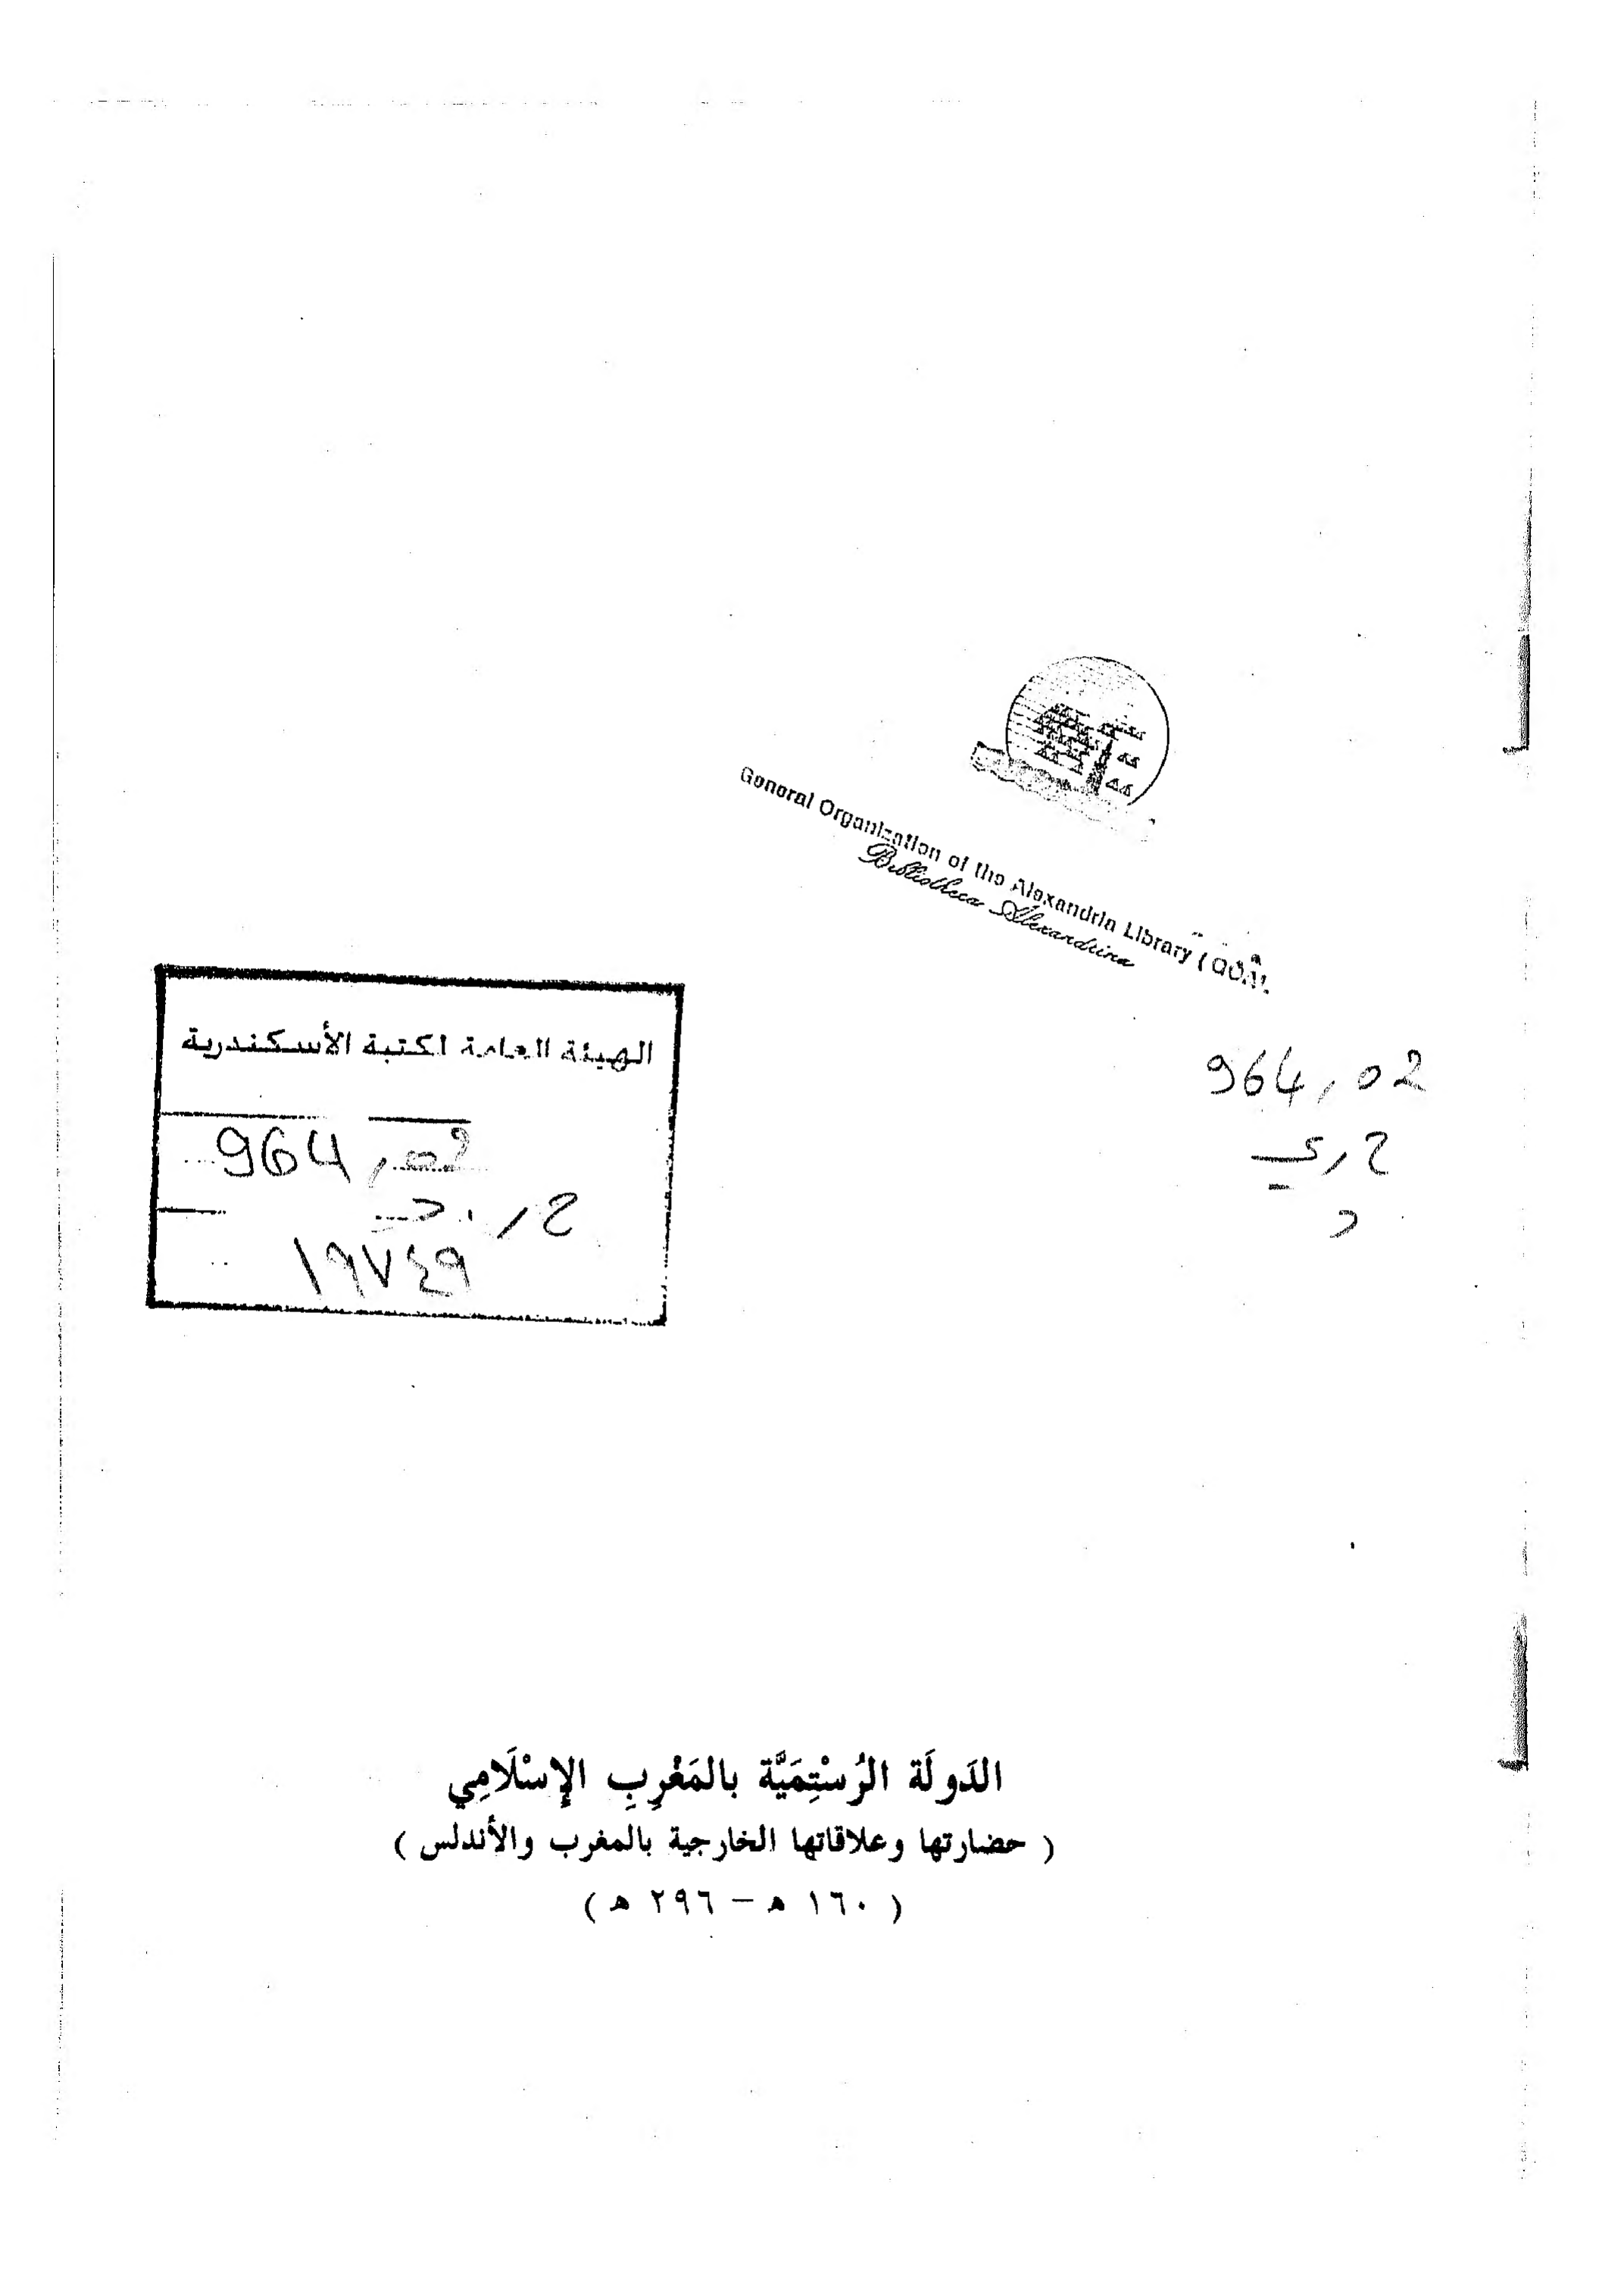 General Organization of the Alexandria Library ( GOAL
Bibliotheca Alexandrina
الهيئة العامة لكتبة الأسكندرية
964,02
ح ر.
١٩٧٤٩
964,02
ح ري
د
الدَولَة الرُسْتِمَيَّة بالمَغْرِبِ الإِسْلَامِي
( حضارتها وعلاقاتها الخارجية بالمغرب والأندلس )
( ١٦٠ هـ – ٢٩٦ هـ )